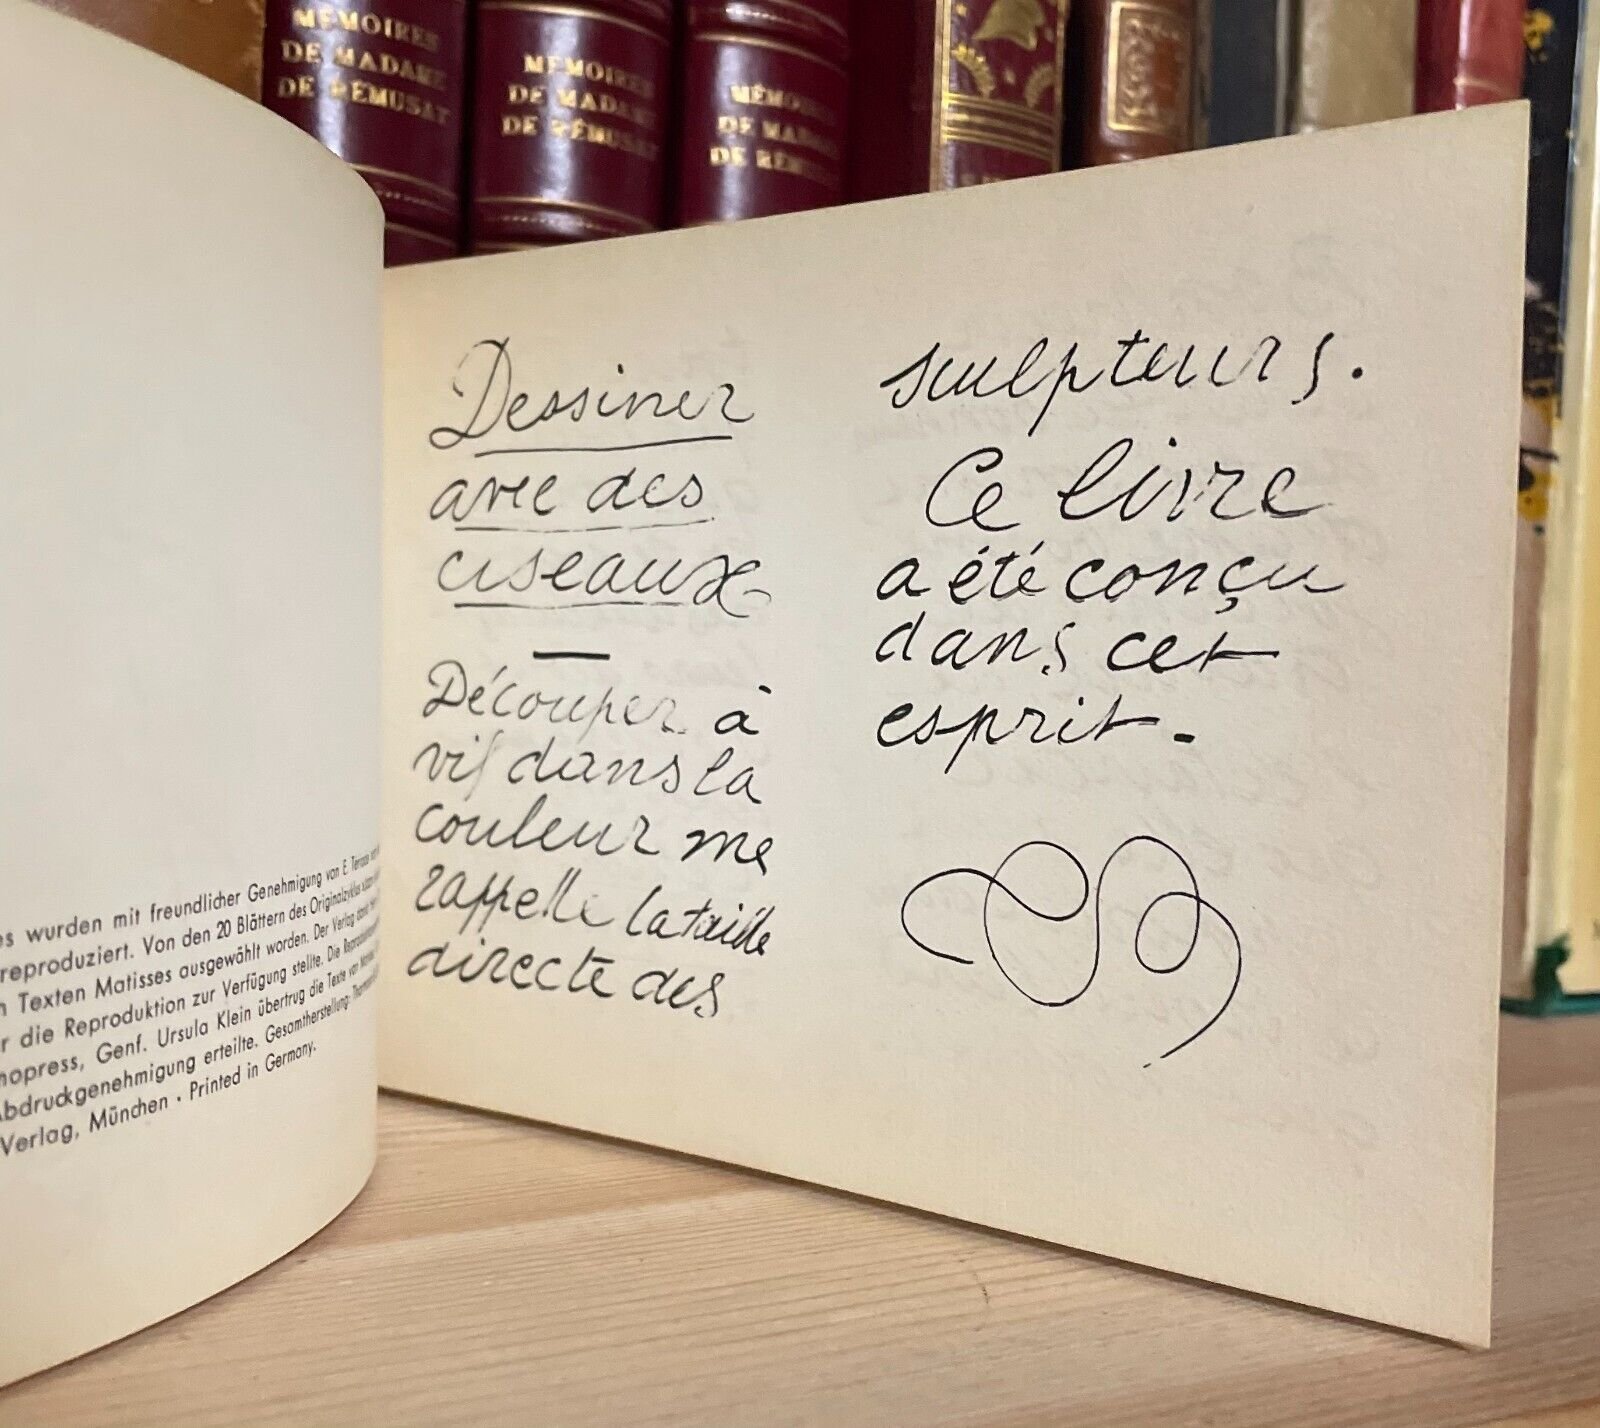 MÉMOIRES
DE MADAME
DE RÉMUSAT
MÉMOIRES
DE MADAME
DE RÉMUSAT
DE
DE
es wurden mit freundlicher Genehmigung von E. Teriade
reproduziert. Von den 20 Blättern des Originalzyklus
Texten Matisses ausgewählt worden. Der Verlag dankt
die Reproduktion zur Verfügung stellte. Die
Genf. Ursula Klein übertrug die Texte von
Abdruckgenehmigung erteilte. Gesamtherstellung:
Verlag, München · Printed in Germany.
Dessiner
avec des
ciseaux
Découper à
vif dans la
couleur me
rappelle la taille
directe des
sculpteurs.
Ce livre
a été conçu
dans cet
esprit.